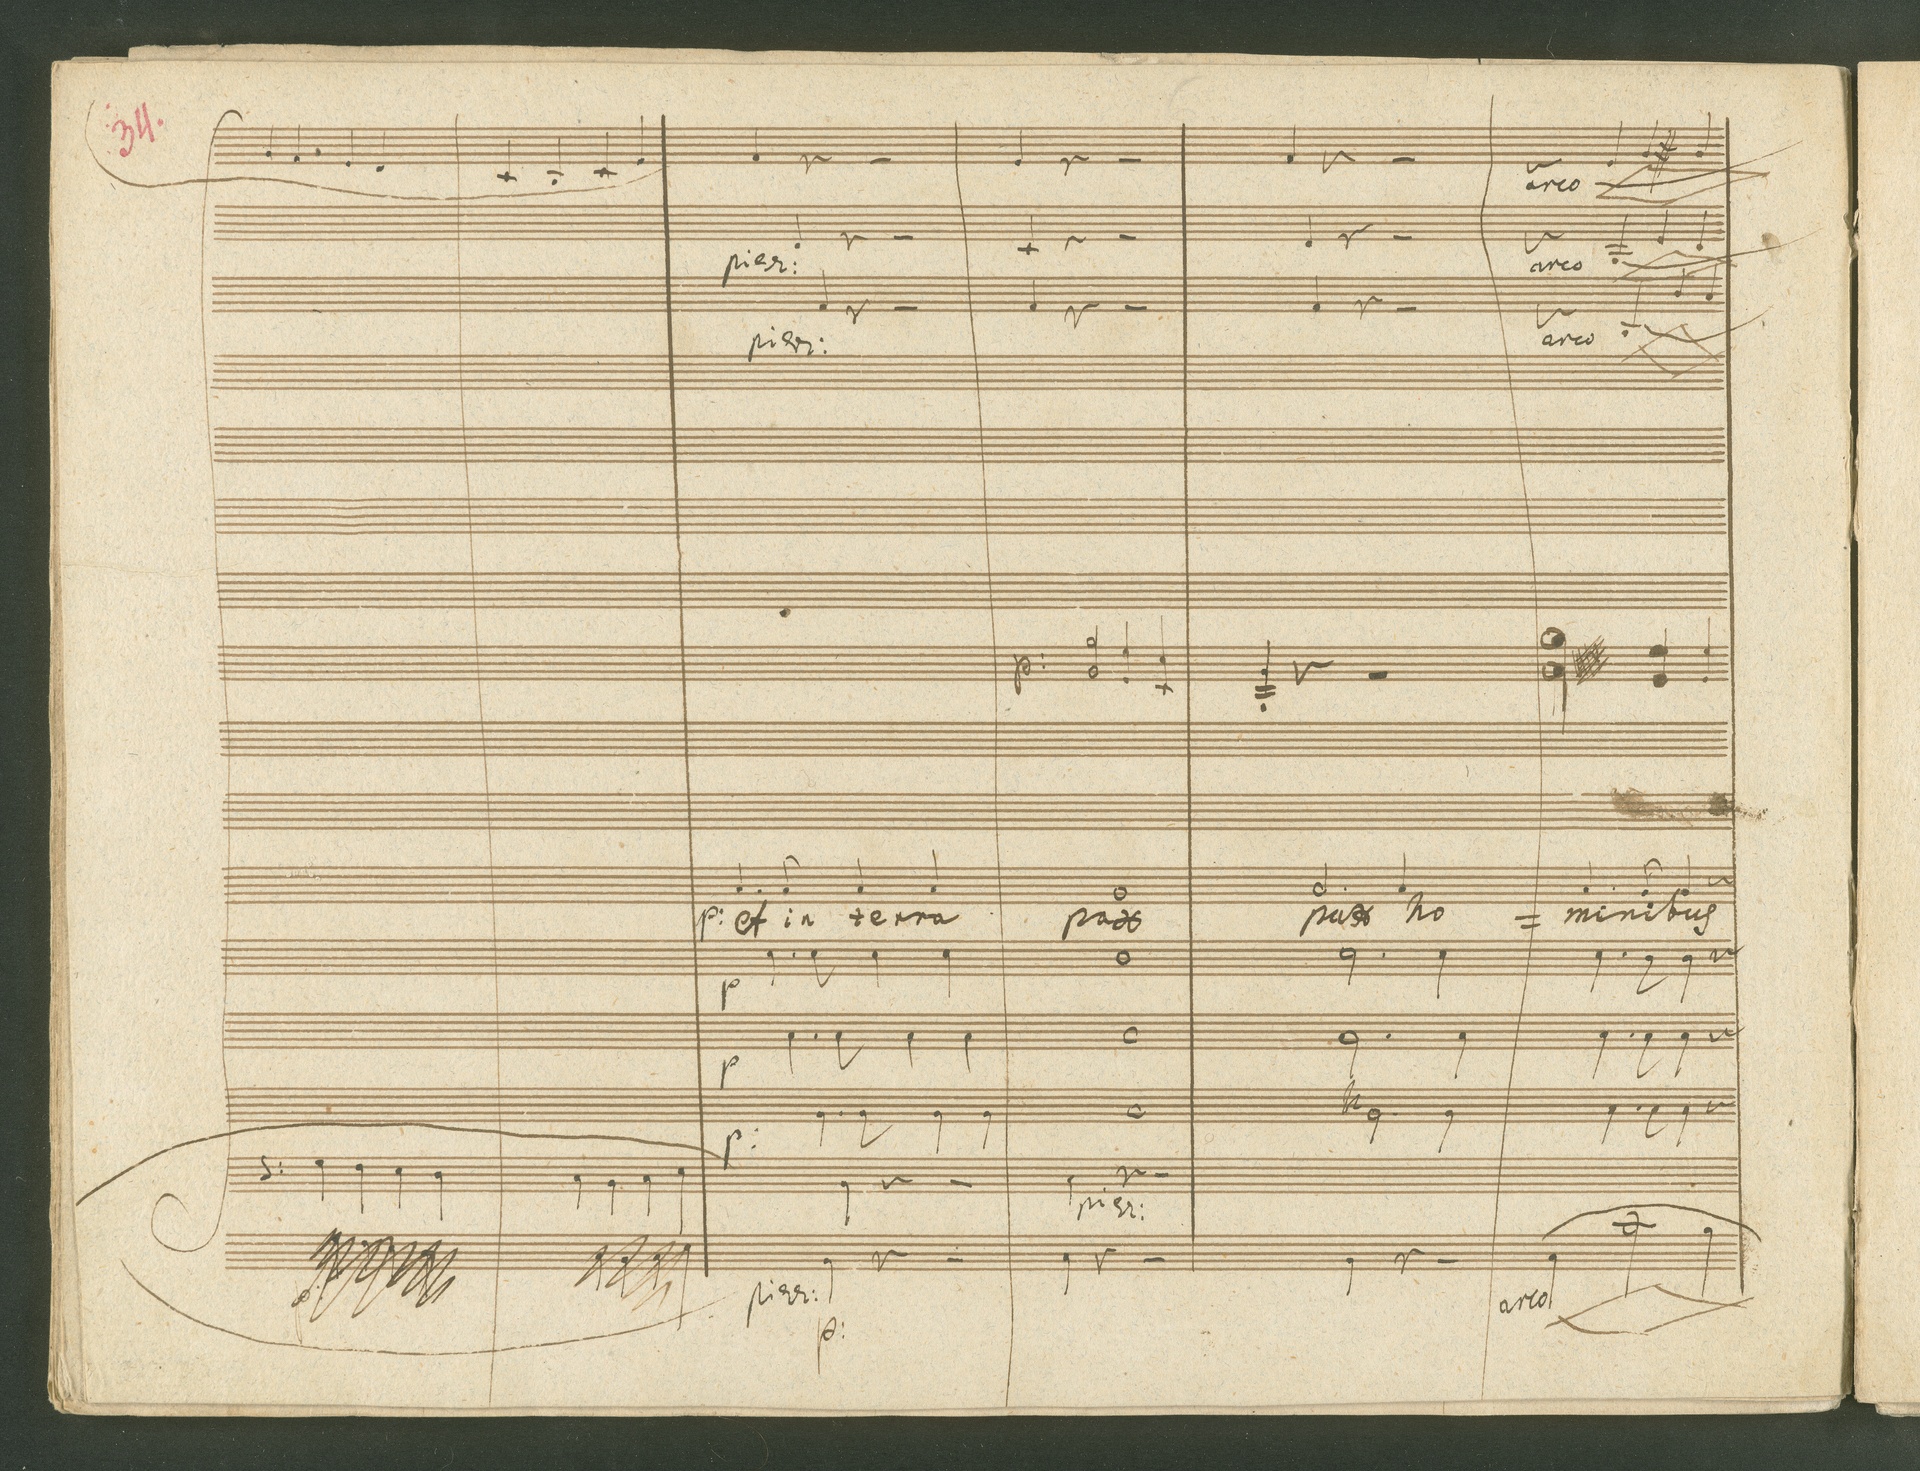 34.
arco
pizz:
arco
pizz:
arco
p:
p: et in terra pax pax ho = minibus
p
p
p:
s:
pizz:
pizz:
arco
p: